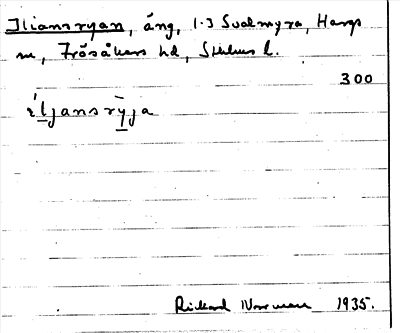 Iliansryan, äng, 1-3 Svalmyra, Hargs
sn, Frösåkers hd, Sthlms l.
300
íl̲jansrȳ̲ja
Rickard Norrman 1935.